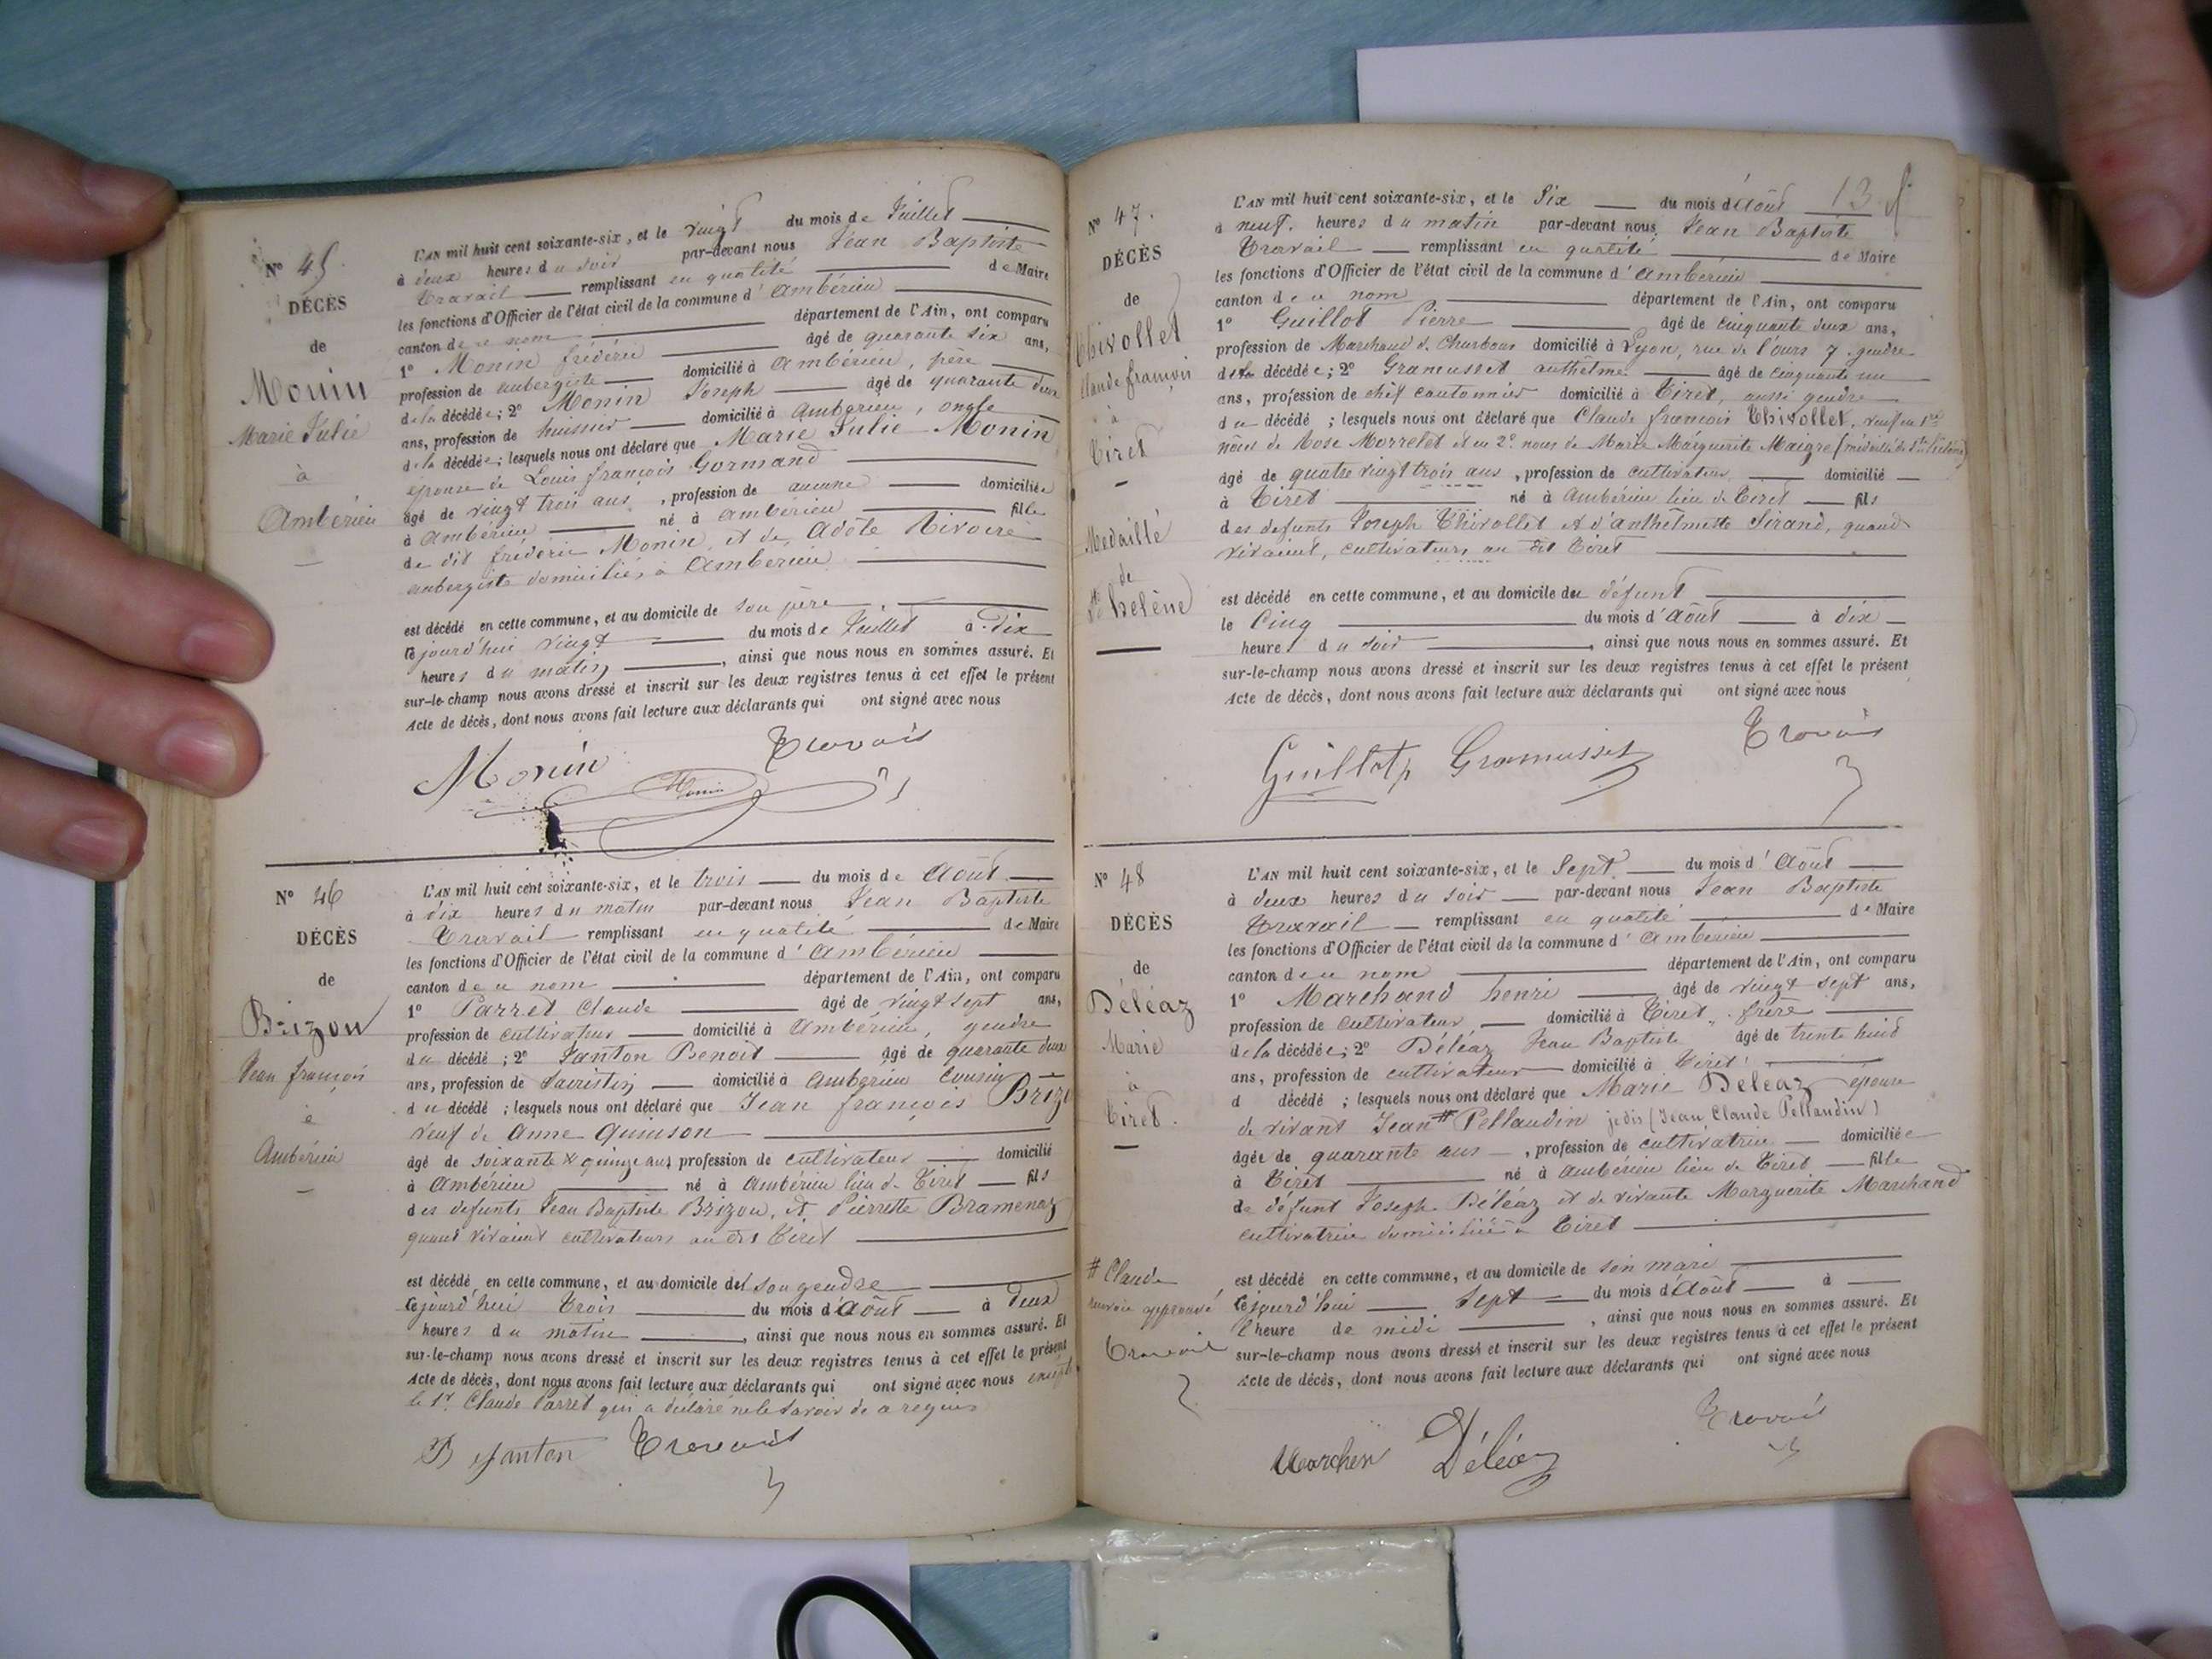 N° 45.
DÉCÈS
de
Monin
Marie Julie
à
Ambérieu
L'AN mil huit cent soixante-six, et le vingt du mois de Juillet
à deux heures du soir par-devant nous Jean Baptiste
Travail remplissant en qualité de Maire
les fonctions d'Officier de l'état civil de la commune d'Ambérieu
canton de ce nom département de l'Ain, ont comparu
1° Monin frédéric âgé de quarante six ans,
profession de aubergiste domicilié à Ambérieu, père
de la décédée; 2° Monin Joseph âgé de quarante deux
ans, profession de huissier domicilié à Ambérieu, oncle
de la décédée; lesquels nous ont déclaré que Marie Julie Monin
épouse de Louis françois Gormand
âgé de vingt trois ans, profession de aucune domiciliée
à Ambérieu né à Ambérieu fille
de dit frédéric Monin, et de Adèle Rivoire
aubergiste domiciliés à Ambérieu
est décédé en cette commune, et au domicile de son père
cejourd'hui vingt du mois de Juillet à dix
heures du matin, ainsi que nous nous en sommes assuré. Et
sur-le-champ nous avons dressé et inscrit sur les deux registres tenus à cet effet le présent
Acte de décès, dont nous avons fait lecture aux déclarants qui ont signé avec nous
Monin Travail
Monin
N° 46
DÉCÈS
de
Brizon
Jean françois
à
Ambérieu
L'AN mil huit cent soixante-six, et le trois du mois de Août
à dix heures du matin par-devant nous Jean Baptiste
Travail remplissant en qualité de Maire
les fonctions d'Officier de l'état civil de la commune d'Ambérieu
canton de ce nom département de l'Ain, ont comparu
1° Parret Claude âgé de vingt sept ans,
profession de cultivateur domicilié à Ambérieu, gendre
du décédé; 2° Janton Benoit âgé de quarante deux
ans, profession de Sacristin domicilié à Ambérieu Cousin
du décédé; lesquels nous ont déclaré que Jean françois
veuf de Anne Quinson
âgé de soixante & quinze ans profession de cultivateur domicilié
à Ambérieu né à Ambérieu lieu de Tiret fils
des défunts Jean Baptiste Brizon, et Pierrette Bramenaz
quand vivaient cultivateurs au dit Tiret
est décédé en cette commune, et au domicile de son gendre
cejourd'hui trois du mois d'Août à deux
heures du matin, ainsi que nous nous en sommes assuré. Et
sur-le-champ nous avons dressé et inscrit sur les deux registres tenus à cet effet le présent
Acte de décès, dont nous avons fait lecture aux déclarants qui ont signé avec nous excepté
le 1er Claude Parret qui a déclaré ne le savoir de ce requis
B Janton Travail
13
N° 47.
DÉCÈS
de
Thivollet
Claude françois
à
Tiret
Médaillé
de
Ste hélène
L'AN mil huit cent soixante-six, et le Six du mois d'Août
à neuf heures du matin par-devant nous Jean Baptiste
Travail remplissant en qualité de Maire
les fonctions d'Officier de l'état civil de la commune d'Ambérieu
canton de ce nom département de l'Ain, ont comparu
1° Guillot Pierre âgé de cinquante deux ans,
profession de Marchand de Charbons domicilié à Lyon, rue de l'ours 7. gendre
de la décédée; 2° Gramusset anthelme âgé de cinquante un
ans, profession de chef cantonnier domicilié à Tiret, aussi gendre
du décédé; lesquels nous ont déclaré que Claude françois Thivollet, veuf en 1res
nôces de Rose Morrelet et en 2e noces de Marie Marguerite Maigre (médaillé de Ste hélène)
âgé de quatre vingt trois ans, profession de cultivateur domicilié
à Tiret né à Ambérieu lieu de Tiret fils
des défunts Joseph Thivollet et d'anthelmette Sirand, quand
vivaient, cultivateurs au dit Tiret
est décédé en cette commune, et au domicile du défunt
le Cinq du mois d'Août à dix
heures du soir, ainsi que nous nous en sommes assuré. Et
sur-le-champ nous avons dressé et inscrit sur les deux registres tenus à cet effet le présent
Acte de décès, dont nous avons fait lecture aux déclarants qui ont signé avec nous
Guillot p Gramusset Travail
N° 48
DÉCÈS
de
Déléaz
Marie
à
Tiret.
L'AN mil huit cent soixante-six, et le Sept du mois d'Août
à deux heures du soir par-devant nous Jean Baptiste
Travail remplissant en qualité de Maire
les fonctions d'Officier de l'état civil de la commune d'Ambérieu
canton de ce nom département de l'Ain, ont comparu
1° Marchand henri âgé de vingt sept ans,
profession de cultivateur domicilié à Tiret, frère
de la décédée; 2° Déléaz Jean Baptiste âgé de trente huit
ans, profession de cultivateur domicilié à Tiret
d décédé; lesquels nous ont déclaré que Marie Déléaz épouse
de vivant Jean # Pellaudin je dis (Jean Claude Pellaudin)
âgée de quarante ans, profession de cultivatrice domiciliée
à Tiret né à Ambérieu lieu de Tiret fille
de défunt Joseph Déléaz et de vivante Marguerite Marchand
cultivatrice domiciliée à Tiret
# Claude
renvoi approuvé
Travail
est décédé en cette commune, et au domicile de son mari
cejourd'hui Sept du mois d'Août à
l'heure de midi, ainsi que nous nous en sommes assuré. Et
sur-le-champ nous avons dressé et inscrit sur les deux registres tenus à cet effet le présent
Acte de décès, dont nous avons fait lecture aux déclarants qui ont signé avec nous
Marchen Déléaz Travail